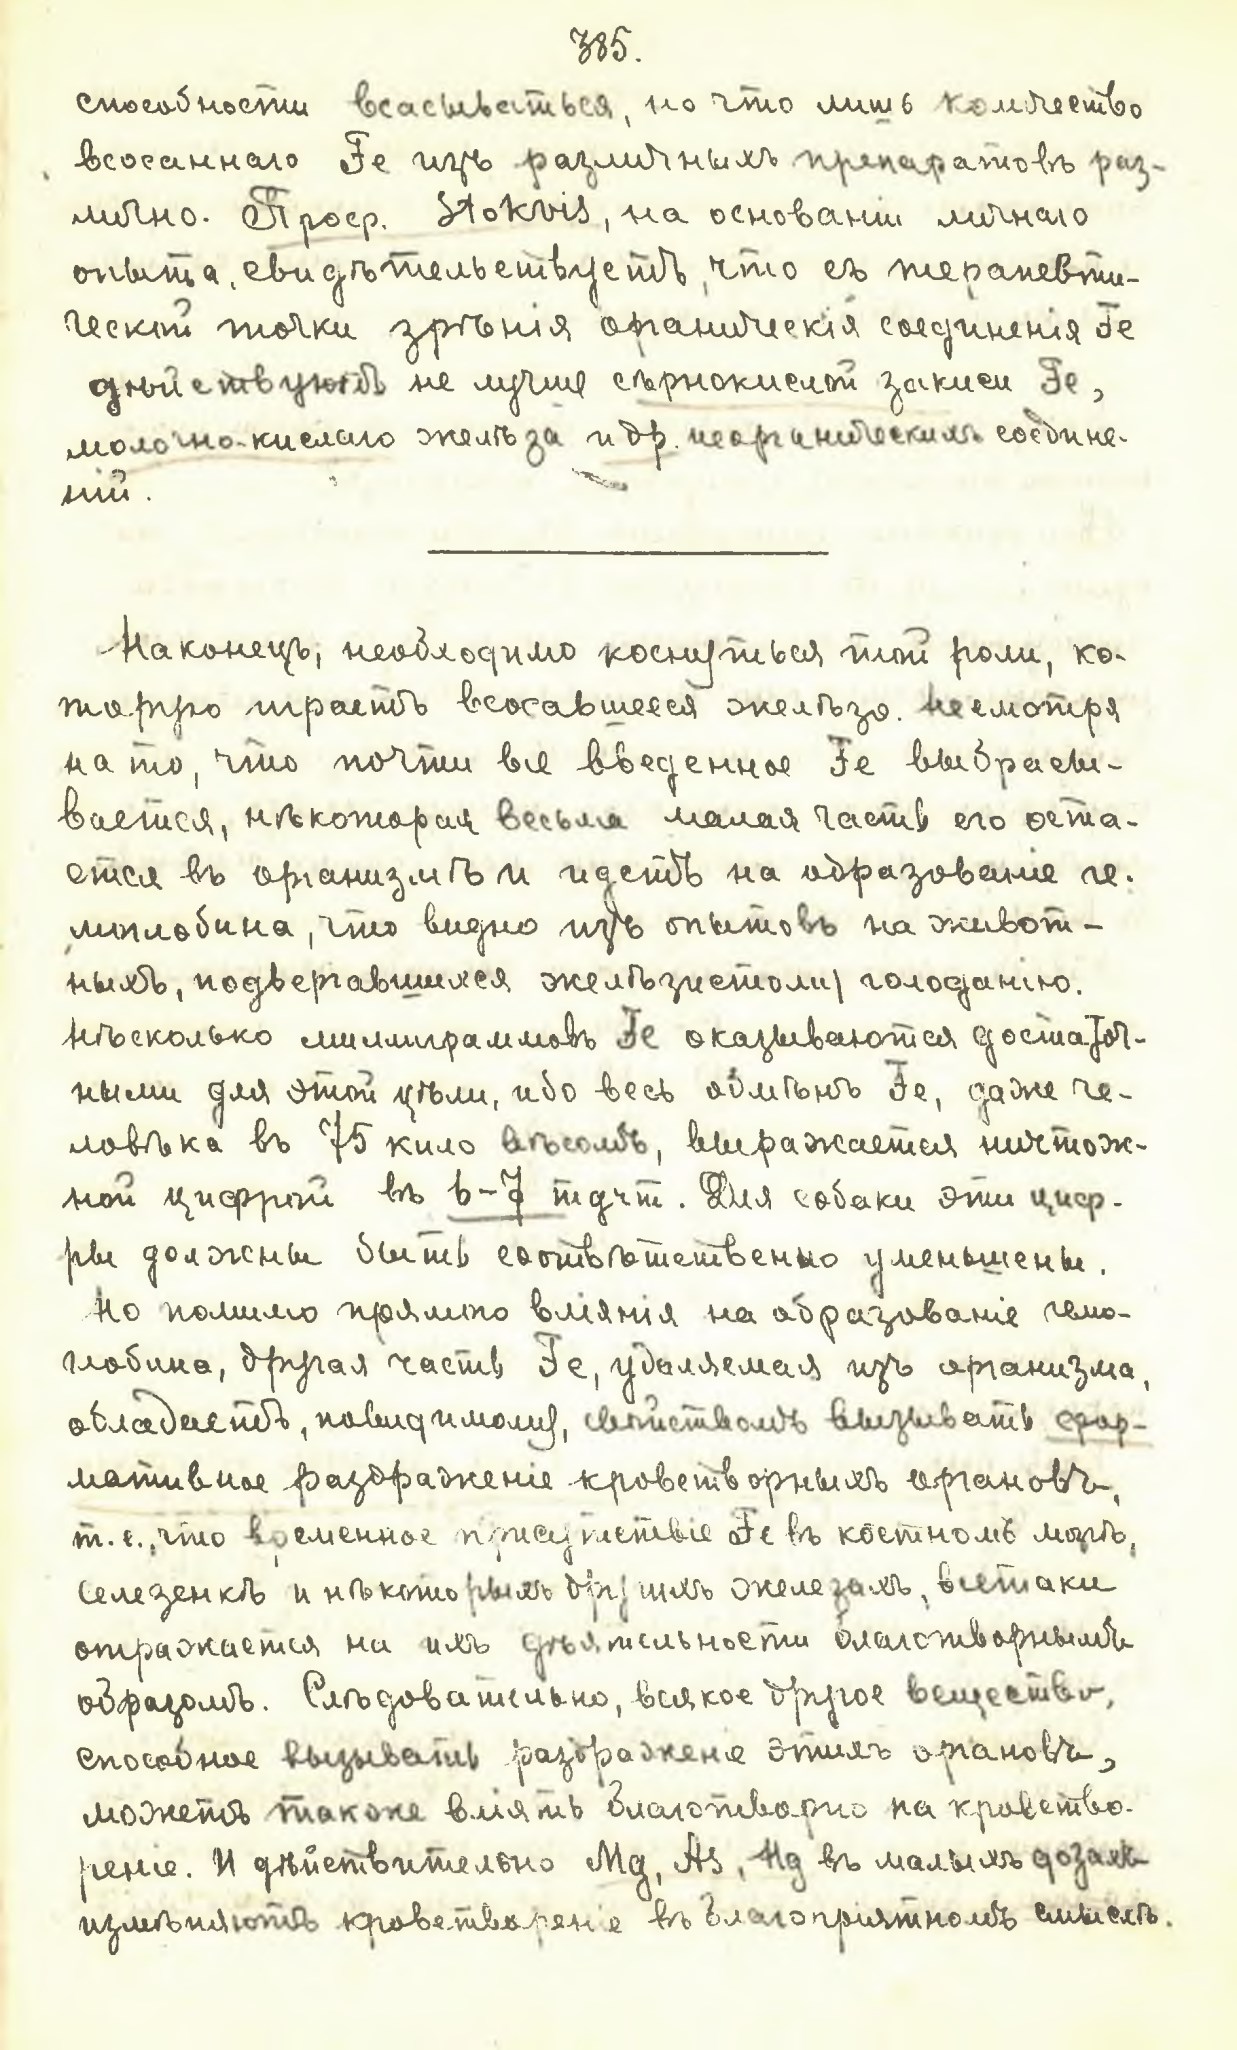 385.
способности всасываться, но что лишь количество
всосаннаго Fe изъ различныхъ препаратовъ раз-
лично. Проф. Stokvis, на основаніи личнаго
опыта, свидѣтельствуетъ, что съ терапевти-
ческой точки зрѣнія органическія соединенія Fe
дѣйствуютъ не лучше сѣрнокислой закиси Fe,
молочно-кислаго желѣза и др. неорганическихъ соедине-
ній.
Наконецъ, необходимо коснуться той роли, ко-
торую играетъ всосавшееся желѣзо. Несмотря
на то, что почти все введенное Fe выбрасы-
вается, нѣкоторая весьма малая часть его оста-
ется въ организмѣ и идетъ на образованіе ге-
моглобина, что видно изъ опытовъ на живот-
ныхъ, подвергавшихся желѣзистому голоданію.
Нѣсколько миллиграммовъ Fe оказываются достаточ-
ными для этой цѣли, ибо весь обмѣнъ Fe, даже че-
ловѣка въ 75 кило вѣсомъ, выражается ничтож-
ной цифрой въ 6-7 mgrm. Для собаки эти циф-
ры должны быть соотвѣтственно уменьшены.
Но помимо прямого вліянія на образованіе гемо-
глобина, другая часть Fe, удаляемая изъ организма,
обладаетъ, повидимому, свойствомъ вызывать фор-
мативное раздраженіе кроветворныхъ органовъ,
т. е., что временное присутствіе Fe въ костномъ мозгѣ,
селезенкѣ и нѣкоторыхъ другихъ железахъ, всетаки
отражается на ихъ дѣятельности благотворнымъ
образомъ. Слѣдовательно, всякое другое вещество,
способное вызывать раздраженіе этихъ органовъ,
можетъ также вліять благотворно на кроветво-
реніе. И дѣйствительно Mg, As, Hg въ малыхъ дозахъ
измѣняютъ кроветвореніе въ благопріятномъ смыслѣ.